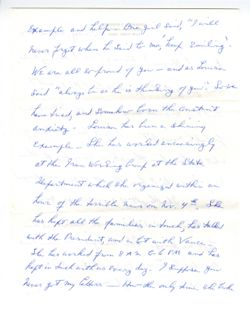 Example and help – One girl said, "I will
never forget when he said to me, 'keep smiling'.
We are all so proud of you – and as Louisa
said "always be as he is thinking of you". So we
have tried, and somehow borne the constant
anxiety. Louisa has been a shining
Example – She has worked unceasingly
at the Iran Working Group at the State
Department which she organized within an
hour of the terrible news on Nov. 4th. She
has kept all the families in touch, has talked
with the President, and a lot with Vance.
She has worked from 8 A.M. to 6 P.M. and has
kept in touch with us every day. I suppose you
never got my letters – the only time